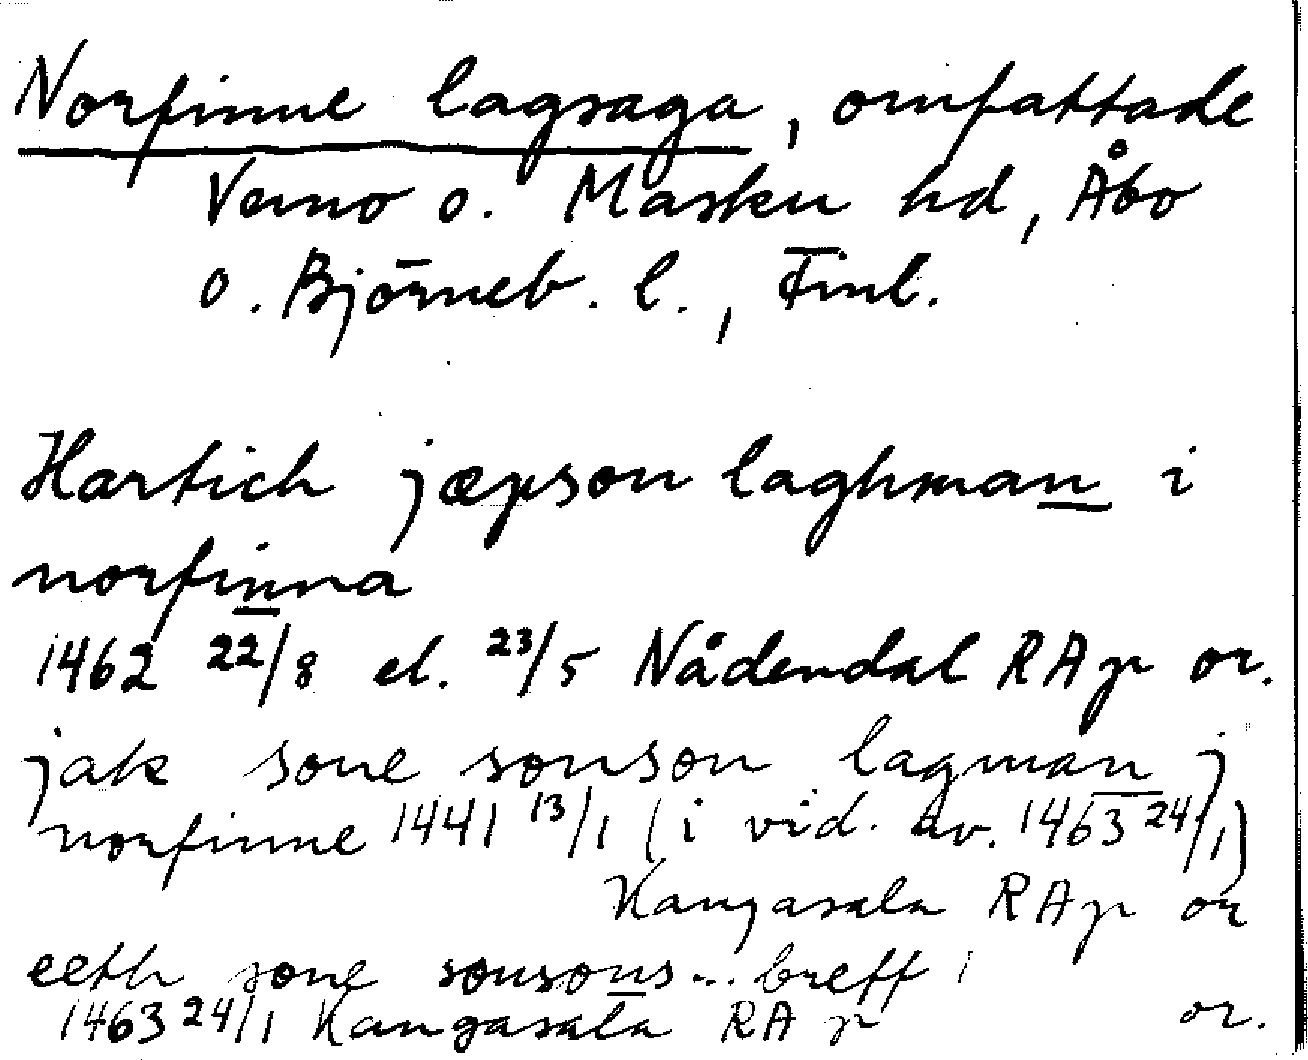 Norfinne lagsaga, omfattade
Vemo o. Masku hd, Åbo
o. Björneb. l., Finl.
Hartich jæpson laghman i
norfinna
1462 22/8 el. 23/5 Nådendal RAp or.
jak sone sonson lagman j
norfinne 1441 13/1 (i vid. av. 1463 24/1)
Kangasala RAp or
eeth sone sonsons... breff
1463 24/1 Kangasala RAp or.